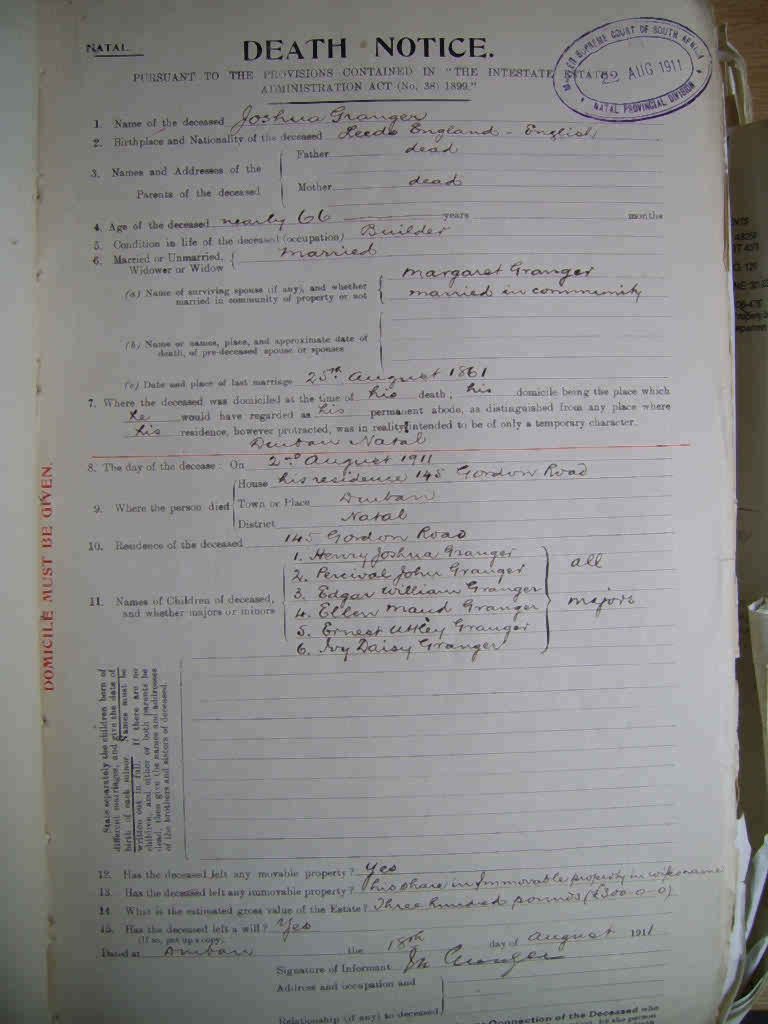 NATAL.
DEATH NOTICE.
PURSUANT TO THE PROVISIONS CONTAINED IN "THE INTESTATE ESTATES
ADMINISTRATION ACT (No. 38) 1899."
SUPREME COURT OF SOUTH AFRICA
22 AUG 1911
NATAL PROVINCIAL DIVISION
1. Name of the deceased Joshua Granger
2. Birthplace and Nationality of the deceased Leeds England - English
3. Names and Addresses of the Parents of the deceased
Father dead
Mother dead
4. Age of the deceased nearly 66 years months
5. Condition in life of the deceased (occupation) Builder
6. Married or Unmarried, Widower or Widow { Married
(a) Name of surviving spouse (if any), and whether married in community of property or not
Margaret Granger
married in community
(b) Name or names, place, and approximate date of death, of pre-deceased spouse or spouses
(c) Date and place of last marriage 25th August 1861
7. Where the deceased was domiciled at the time of his death; his domicile being the place which
he would have regarded as his permanent abode, as distinguished from any place where
his residence, however protracted, was in reality intended to be of only a temporary character.
Durban Natal
DOMICILE MUST BE GIVEN.
8. The day of the decease: On 2nd August 1911
9. Where the person died
House his residence 145 Gordon Road
Town or Place Durban
District Natal
10. Residence of the deceased 145 Gordon Road
11. Names of Children of deceased, and whether majors or minors
1. Henry Joshua Granger
2. Percival John Granger
3. Edgar William Granger
4. Ellen Maud Granger
5. Ernest Uttley Granger
6. Ivy Daisy Granger
all
majors
State separately the children born of
different marriages, and give the date of
birth of each minor. Names must be
written out in full. If there are no
children, and either or both parents be
dead, then give the names and addresses
of the brothers and sisters of deceased.
12. Has the deceased left any movable property? Yes
13. Has the deceased left any immovable property? his share in Immovable property in wifes name
14. What is the estimated gross value of the Estate? Three hundred pounds (£300-0-0)
15. Has the deceased left a will? Yes
(If so, put up a copy)
Dated at Durban the 18th day of August 1911
Signature of Informant Granger
Address and occupation and
Relationship (if any) to deceased
Connection of the Deceased who